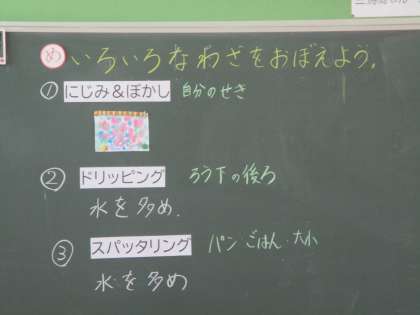 め いろいろなわざをおぼえよう。
① にじみ&ぼかし 自分のせき
② ドリッピング ろう下の後ろ
水を多め.
③ スパッタリング パン ごはん 大小
水を多め